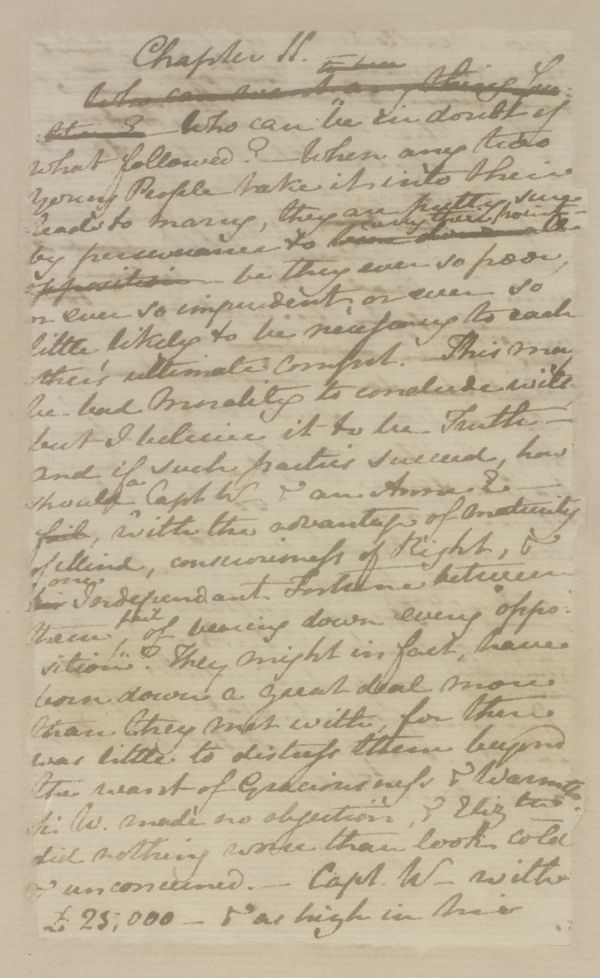 Chapter 11.
to two
Who can want any thing
Who can be in doubt of
what followed? — When any two
Young People take it into their
heads to marry, they are pretty sure
carry their point
by perseverance to bear down all
opposition — be they ever so poor,
or ever so imprudent, or ever so
little likely to be necessary to each
other's ultimate comfort. This may
be bad Morality to conclude with,
but I believe it to be Truth —
and if such parties succeed, how
should a Capt W— & an Anne E—
fail, with the advantage of maturity
of Mind, consciousness of Right, &
one
Independant Fortune between
them, fail of bearing down every oppo-
sition? They might in fact, have
born down a great deal more
than they met with, for there
was little to distress them beyond
the want of Graciousness & Warmth.
Sir W. made no objection, & Elizth
did nothing worse than look cold
& unconcerned. — Capt. W— with
£25,000 — & as high in his